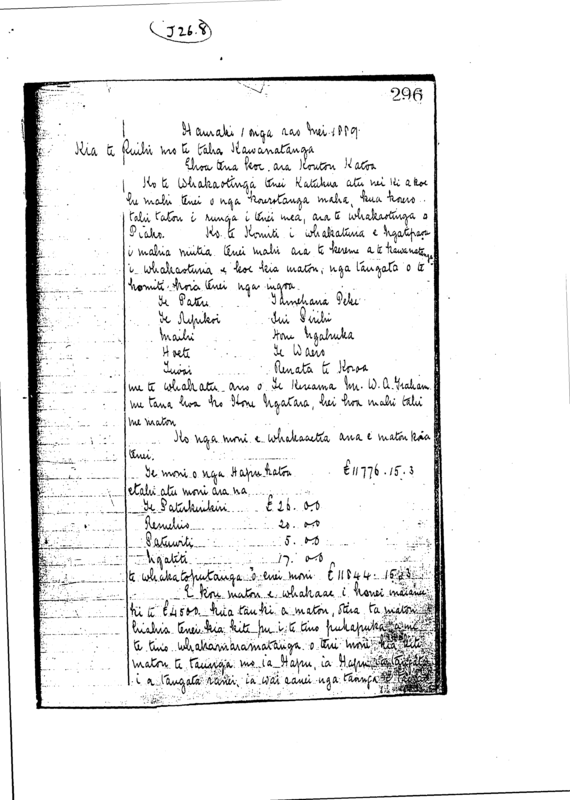 J 26.8
296
Hauraki 1 nga rao Mei 1889
Kia te Puihi mo te taha Kawanatanga
Ehoa tena koe, ara Koutou Katoa
Ko te Whakaotinga tenei Katukua atu nei ki a koe
he mahi tenei o nga korerotanga maha, kua korero
tahi tatou i runga i tenei mea, ara te whakaotinga o
Piako. Ko te Komiti i whakaturia e Ngatipaoa
i mahia nuitia tenei mahi ara te kereme a te Kawanatanga
i whakaoturia e koe kia matou, nga tangata o te
Komiti, koia tenei nga ingoa.
Te Pateu Tamehana Peke
Te Ripikoi
Maihi Hone Ngahuka
Hoete Te Waero
Renata te Korea
me te whakatu ano o Te Kereama Mr. W. A. Graham
me tana hoa ko Hone Ngatara, hei hoa mahi tahi
me matou
Ko nga moni e whakaaetia ana e matou koia
tenei.
Te moni o nga Hapu katoa £11776.15.3
etahi atu moni ara na
£26.0.0
Remehio 20.0.0
Patuwiti 5.0.0
Ngatiti 17.0.0
te whakatoputanga o enei moni £11844.15.3
E hoa matou e whakaae i konei maianei
ki te £4500. kia tau ki a matou, otira ta matou
hiahia tenei kia kite pu i te tino pukapuka ame
te tino whakamaramatanga o tenei moni kia kite
matou te taunga mo ia Hapu, ia Hapu
i a tangata ranei, ia wai ranei nga taunga